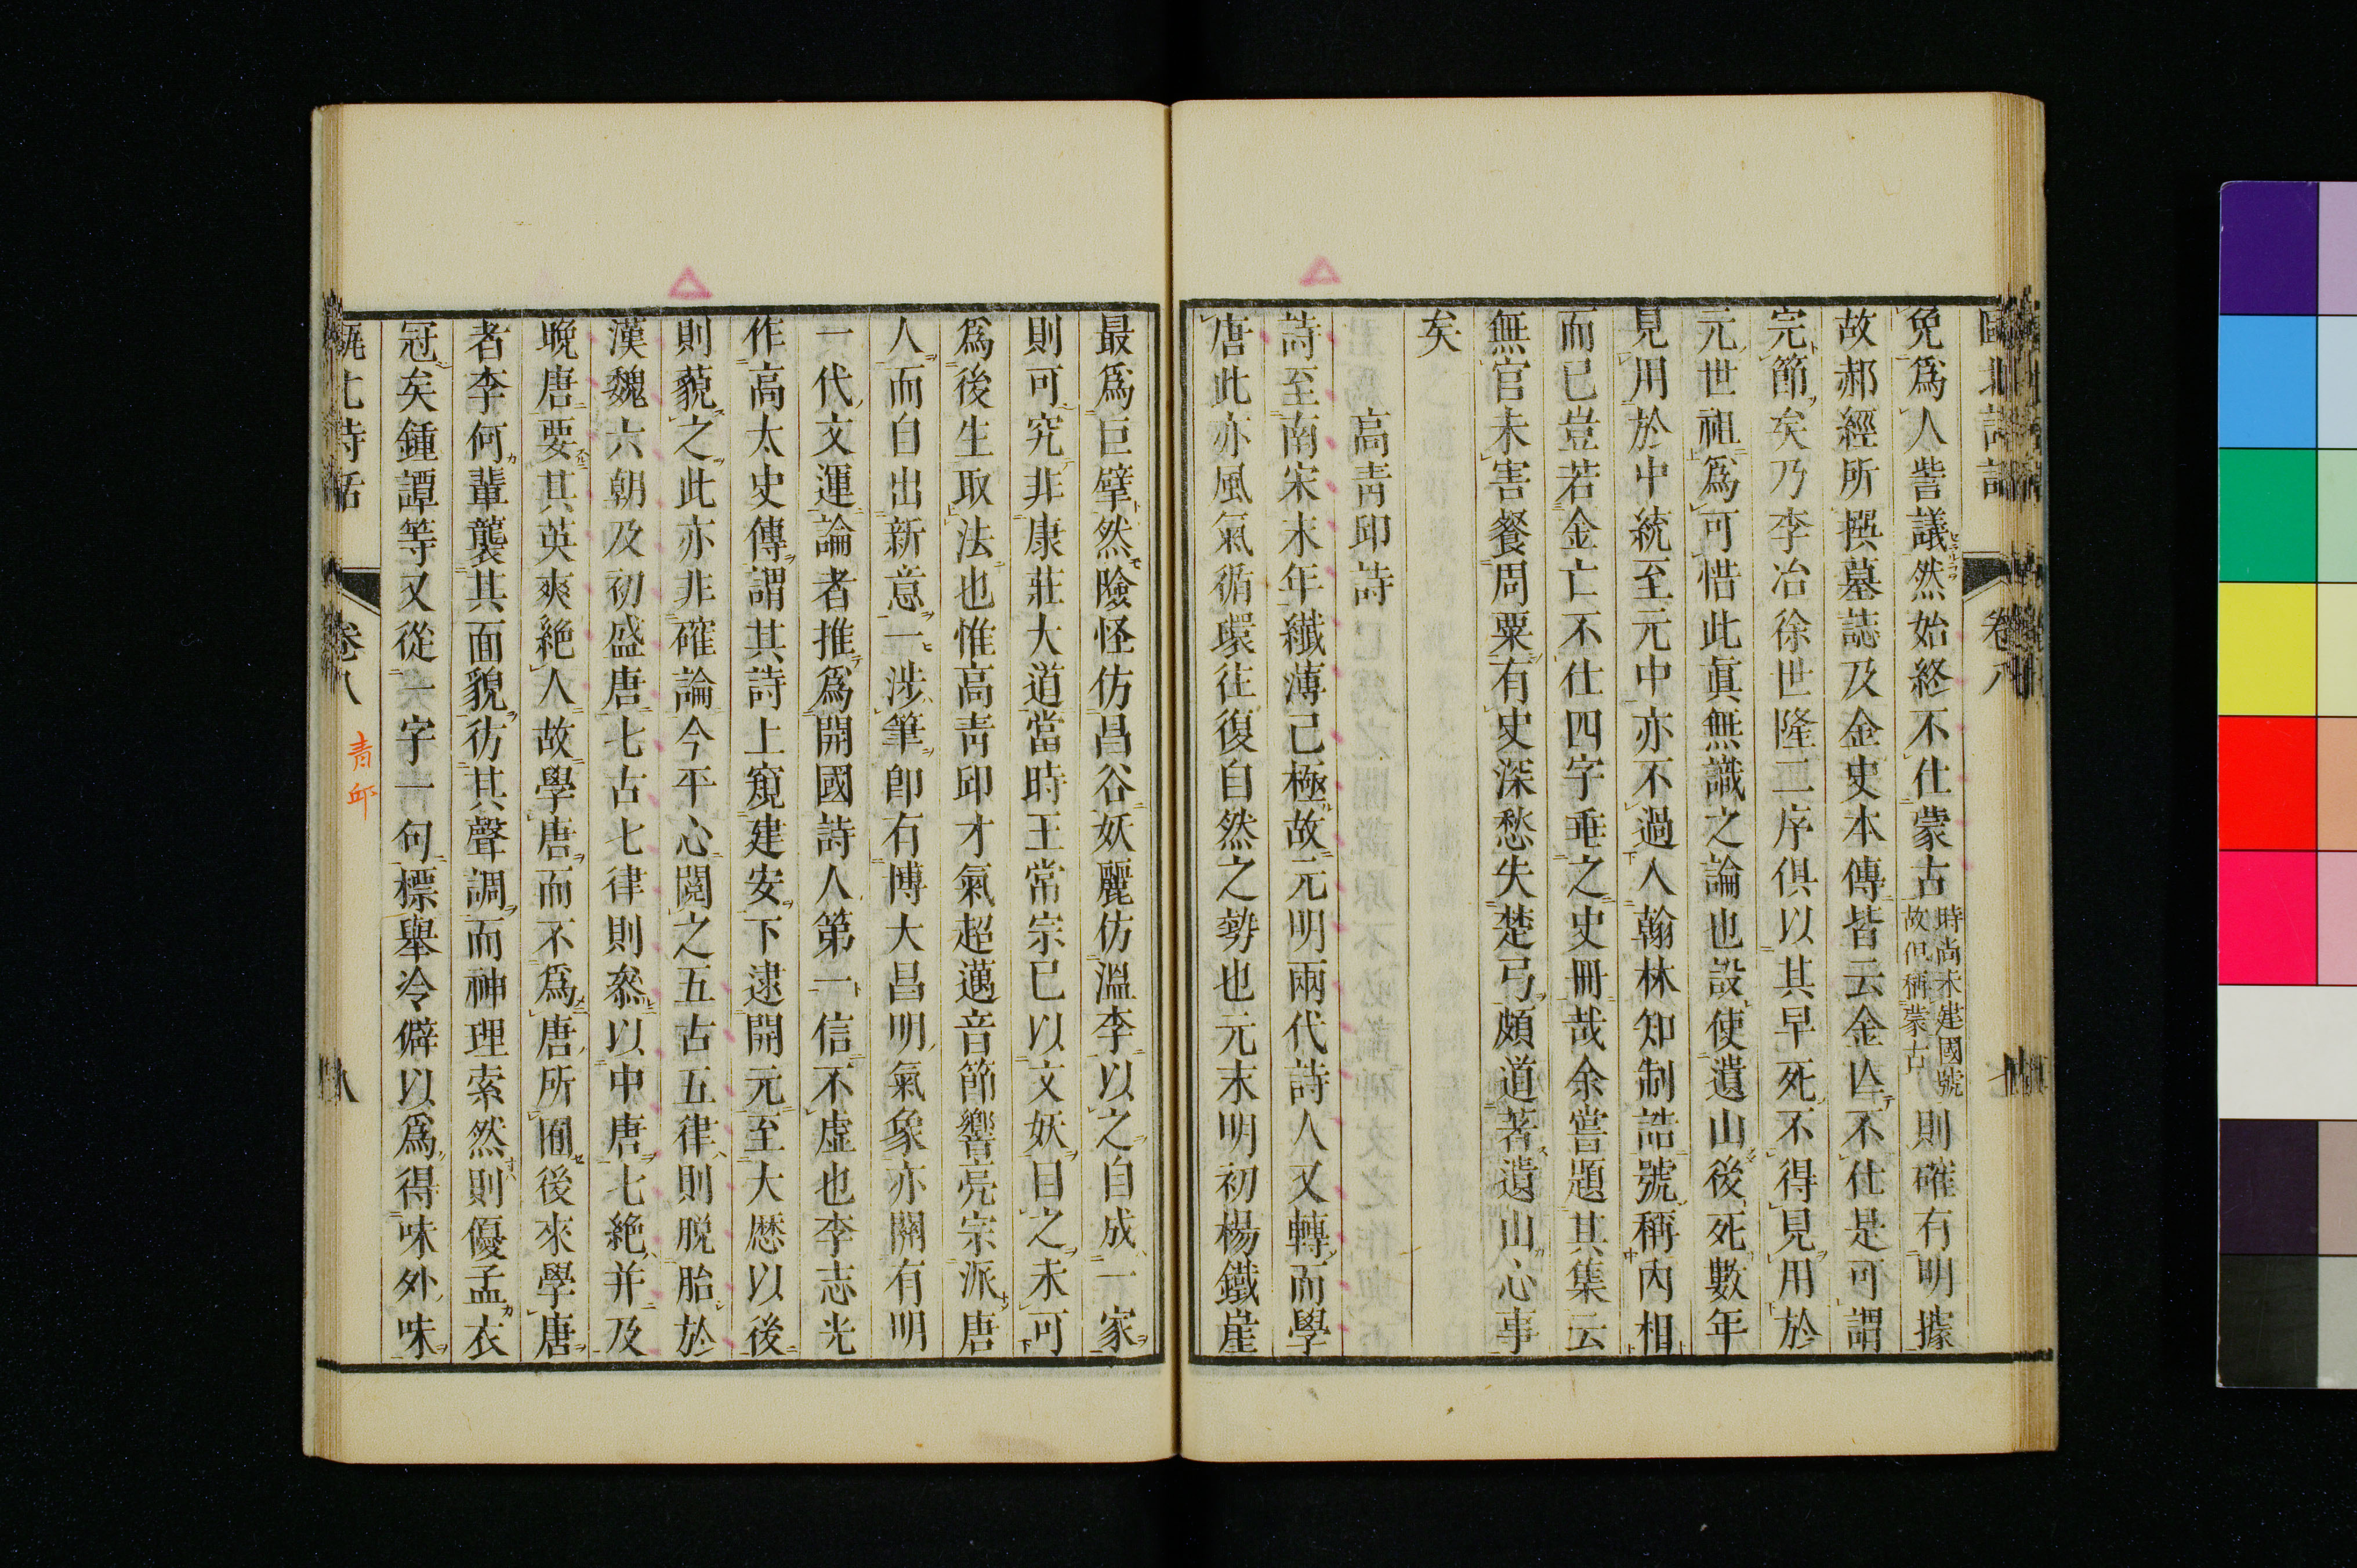 免爲人訾議然始終不仕蒙古時尚未建國號故但稱蒙古則確有明據
故郝經所撰墓誌及金史本傳皆云金亾不仕是可謂
完節矣乃李冶徐世隆二序俱以其早死不得見用於
元世祖爲可惜此眞無識之論也設使遺山後死數年
見用於中統至元中亦不過人翰林知制誥號稱內相
而已豈若金亡不仕四字垂之史冊哉余嘗題其集云
無官未害餐周粟有史深愁失楚弓頗道著遺山心事
矣
高靑邱詩
詩至南宋末年纖薄已極故元明兩代詩人又轉而學
唐此亦風氣循環往復自然之勢也元末明初楊鐵崖
最爲巨擘然險怪仿昌谷妖麗仿溫李以之自成一家
則可究非康莊大道當時王常宗已以文妖目之未可
爲後生取法也惟高靑邱才氣超邁音節響亮宗派唐
人而自出新意一涉筆卽有博大昌明氣象亦關有明
一代文運論者推爲開國詩人第一信不虛也李志光
作高太史傳謂其詩上窺建安下逮開元至大厯以後
則藐之此亦非確論今平心閱之五古五律則脫胎於
漢魏六朝及初盛唐七古七律則叅以中唐七絶并及
晚唐要其英爽絶人故學唐而不爲唐所囿後來學唐
者李何輩襲其面貌彷其聲調而神理索然則優孟衣
冠矣鍾譚等又從一字一句標舉冷僻以爲得味外味
卷八
青邱
八